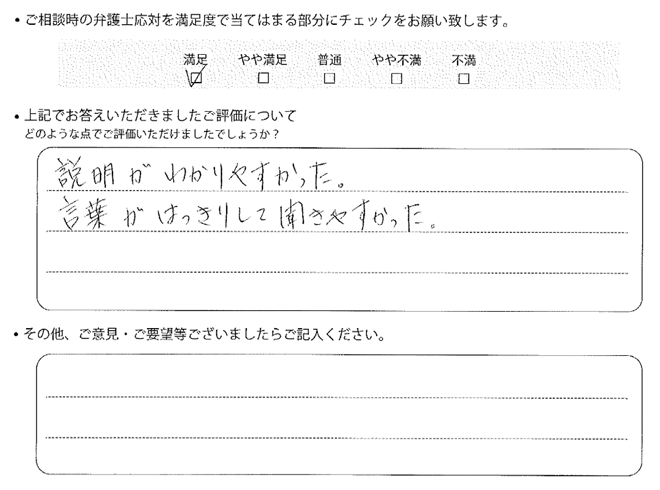 ・ご相談時の弁護士応対を満足度で当てはまる部分にチェックをお願い致します。
満足 やや満足 普通 やや不満 不満
☑ □ □ □ □
・上記でお答えいただきましたご評価について
どのような点でご評価いただけましたでしょうか？
説明がわかりやすかった。
言葉がはっきりして聞きやすかった。
・その他、ご意見・ご要望等ございましたらご記入ください。